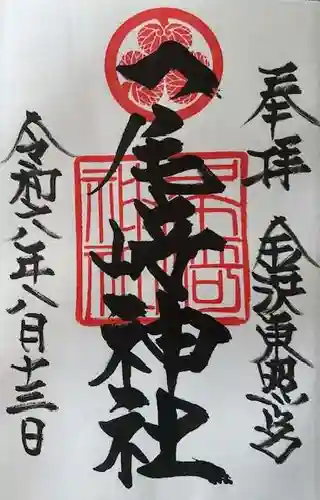 奉拝
金沢東照宮
尾崎神社
尾崎神社
令和六年八月十三日